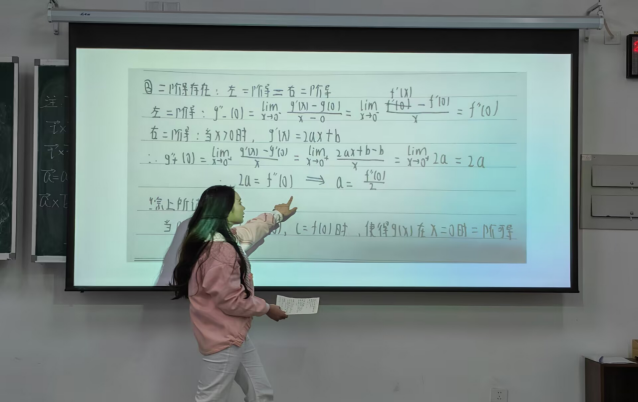 ③ 二阶导存在：左=阶导=右=阶导
左=阶导：g''-(0) = lim x→0⁻ g'(x)-g'(0) / x-0 = lim x→0⁻ f'(x) - f'(0) / x = f''(0)
右=阶导：当x>0时，g'(x)=2ax+b
∴ g''+(0) = lim x→0⁺ g'(x)-g'(0) / x = lim x→0⁺ 2ax+b-b / x = lim x→0⁺ 2a = 2a
2a = f''(0) ⟹ a = f''(0) / 2
综上所
当 , c=f(0)时，使得g(x)在x=0时=阶可导